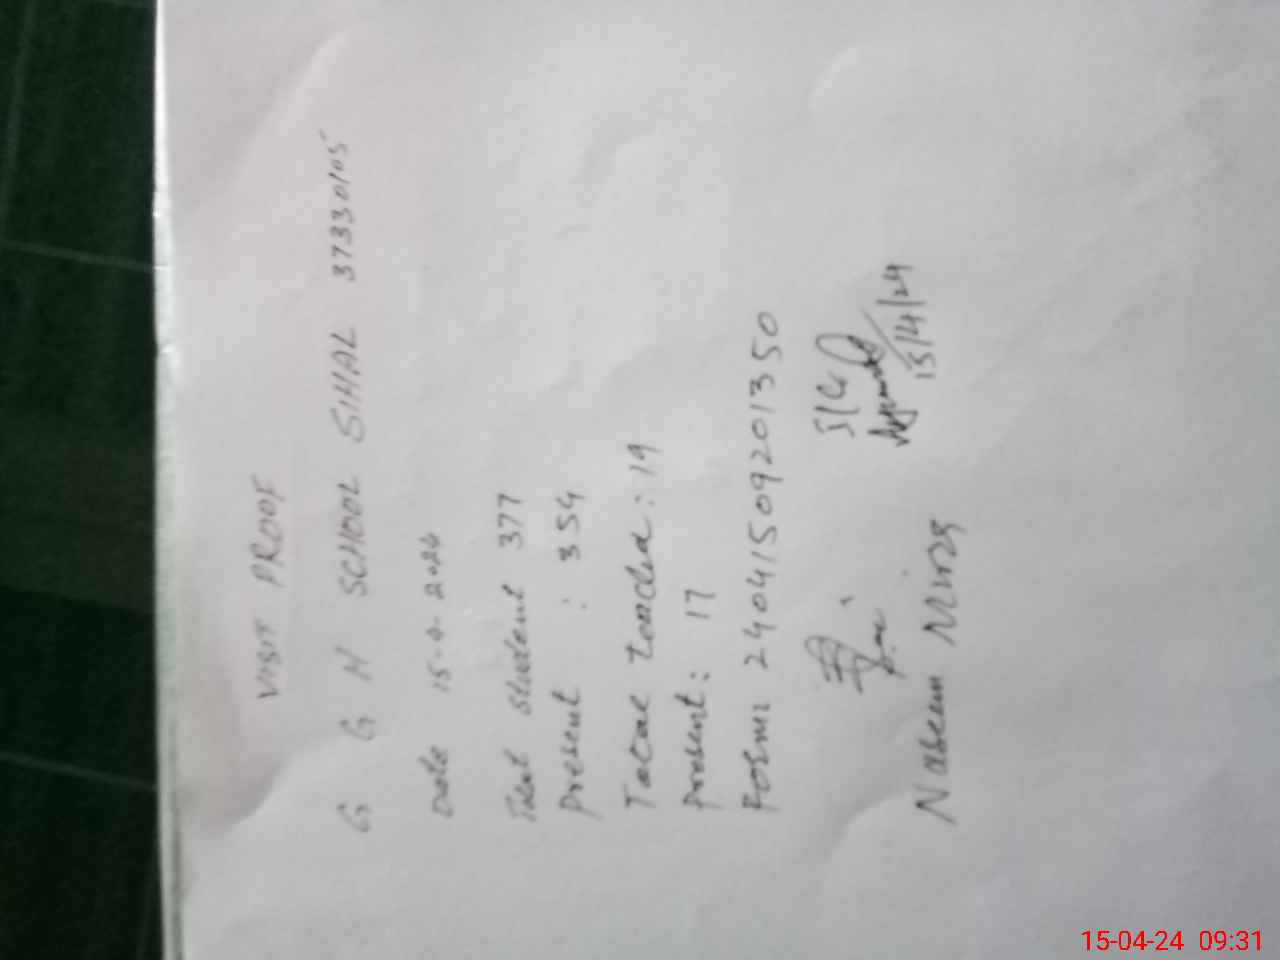 VISIT PROOF
G G N SCHOOL SIHAL 37330105
Date 15-4-2024
Total Student 377
Present : 354
Total teacher : 19
Present : 17
Form: 24041509201350
15/4/24
Naseem Mirza
15-04-24 09:31